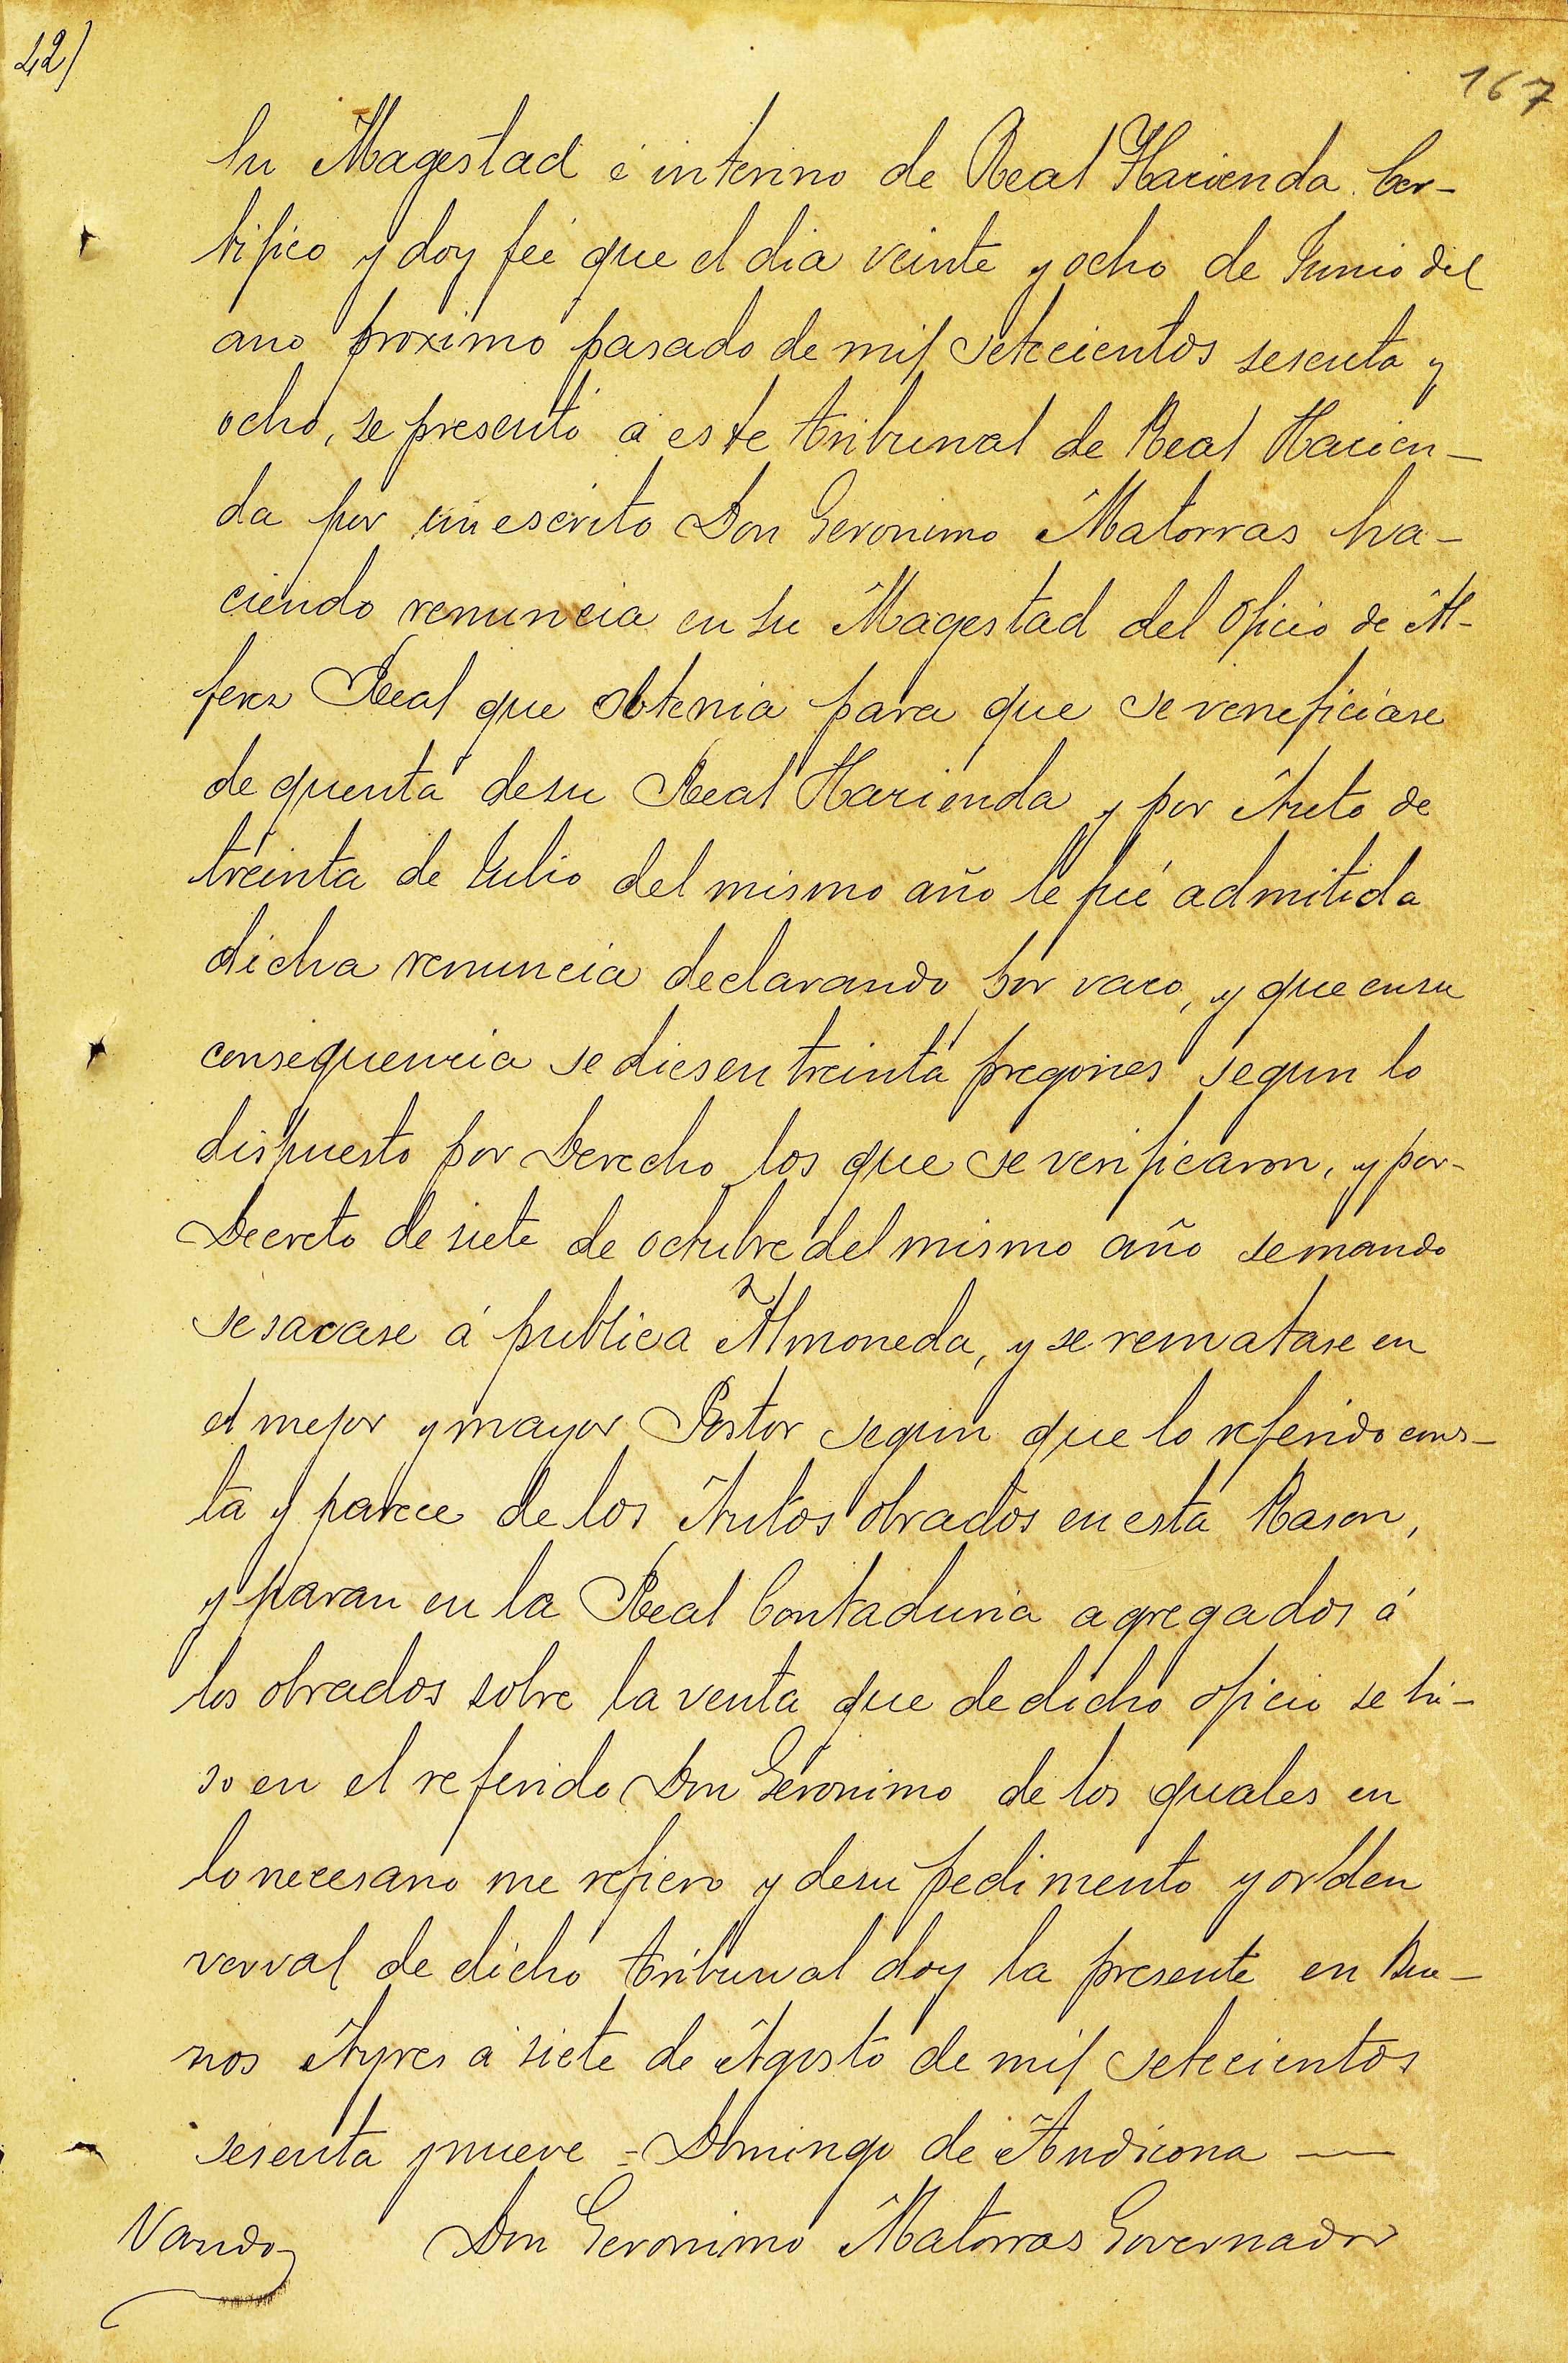 42)
167
Su Magestad é interino de Real Hacienda. Cer-
tifico y doy feé que el dia veinte y ocho de Junio del
ano proximo pasado de mil setecientos sesenta y
ocho, se presentó a este tribunal de Real Hacien-
da por un escrito Don Geronimo Matorras ha-
ciendo renuncia en su Magestad del Oficio de Al-
ferez Real que obtenia para que se veneficiase
de quenta de su Real Hacienda y por Auto de
treinta de Julio del mismo año le fué admitida
dicha renuncia declarando por vaco, y que en su
consequencia se diesen treinta pregones segun lo
dispuesto por Derecho los que se verificaron, y por-
Decreto de siete de octubre del mismo año se mando
se sacase á publica Almoneda, y se rematase en
el mejor y mayor Postor segun que lo referido cons-
ta y parece de los Autos obrados en esta Rason,
y paran en la Real Contaduria agregados á
los obrados sobre la venta que de dicho oficio se hi-
so en el referido Don Geronimo de los quales en
lo necesario me refiero y de su pedimento y orden
verval de dicho tribunal doy la presente en Bue-
nos Ayres a siete de Agosto de mil setecientos
sesenta y nueve = Domingo de Andicona —
Vando
Don Geronimo Matorras Governador